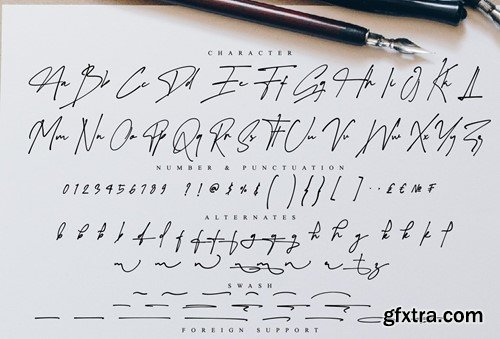 CHARACTER
Aa Bb Cc Dd Ee Ff Gg Hh Ii Jj Kk Ll
Mm Nn Oo Pp Qq Rr Ss Tt Uu Vv Ww Xx Yy Zz
NUMBER & PUNCTUATION
0 1 2 3 4 5 6 7 8 9 ? ! @ $ % & ( ) { } [ ] . . £ € № ₣
ALTERNATES
b b b b d f f f g g g g h h y k k k l
m m n m n u t z
SWASH
FOREIGN SUPPORT
gfxtra.com